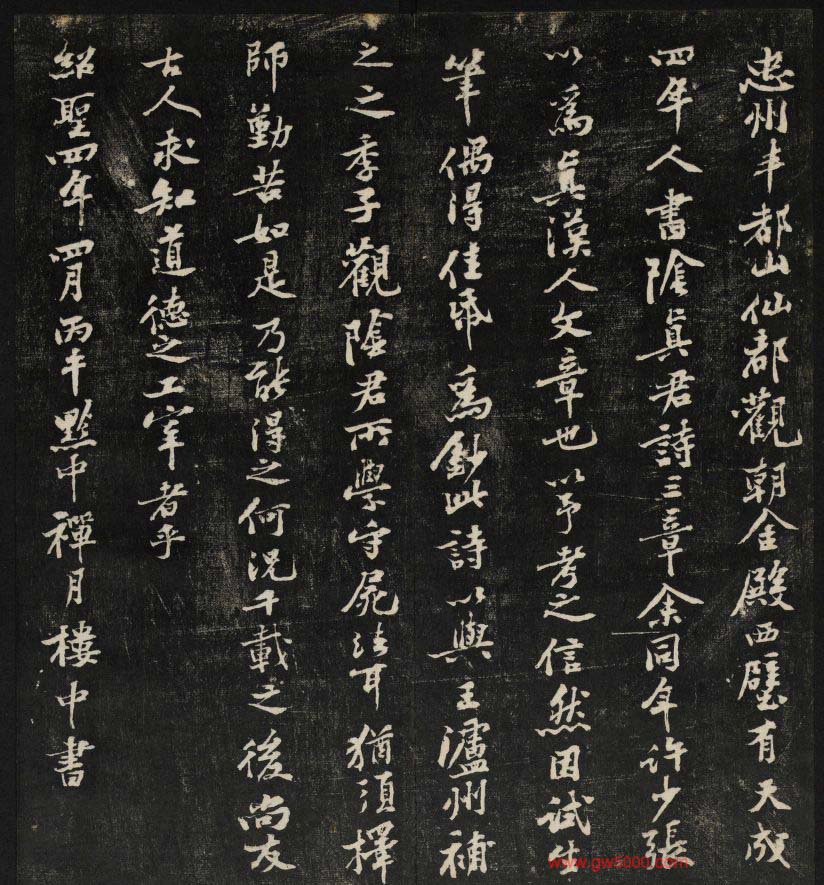 忠州丰都山仙都觀朝金殿西壁有天成
四年人書隂眞君詩三章余同年許少張
以爲眞漢人文章也以予考之信然因試生
筆偶得佳紙爲鈔此詩以與王瀘州補
之之季子觀隂君所學守屍法耳猶須擇
師勤苦如是乃能得之何況千載之後尚友
古人求知道德之工宰者乎
紹聖四年四月丙午黔中禪月樓中書
www.gw5000.com